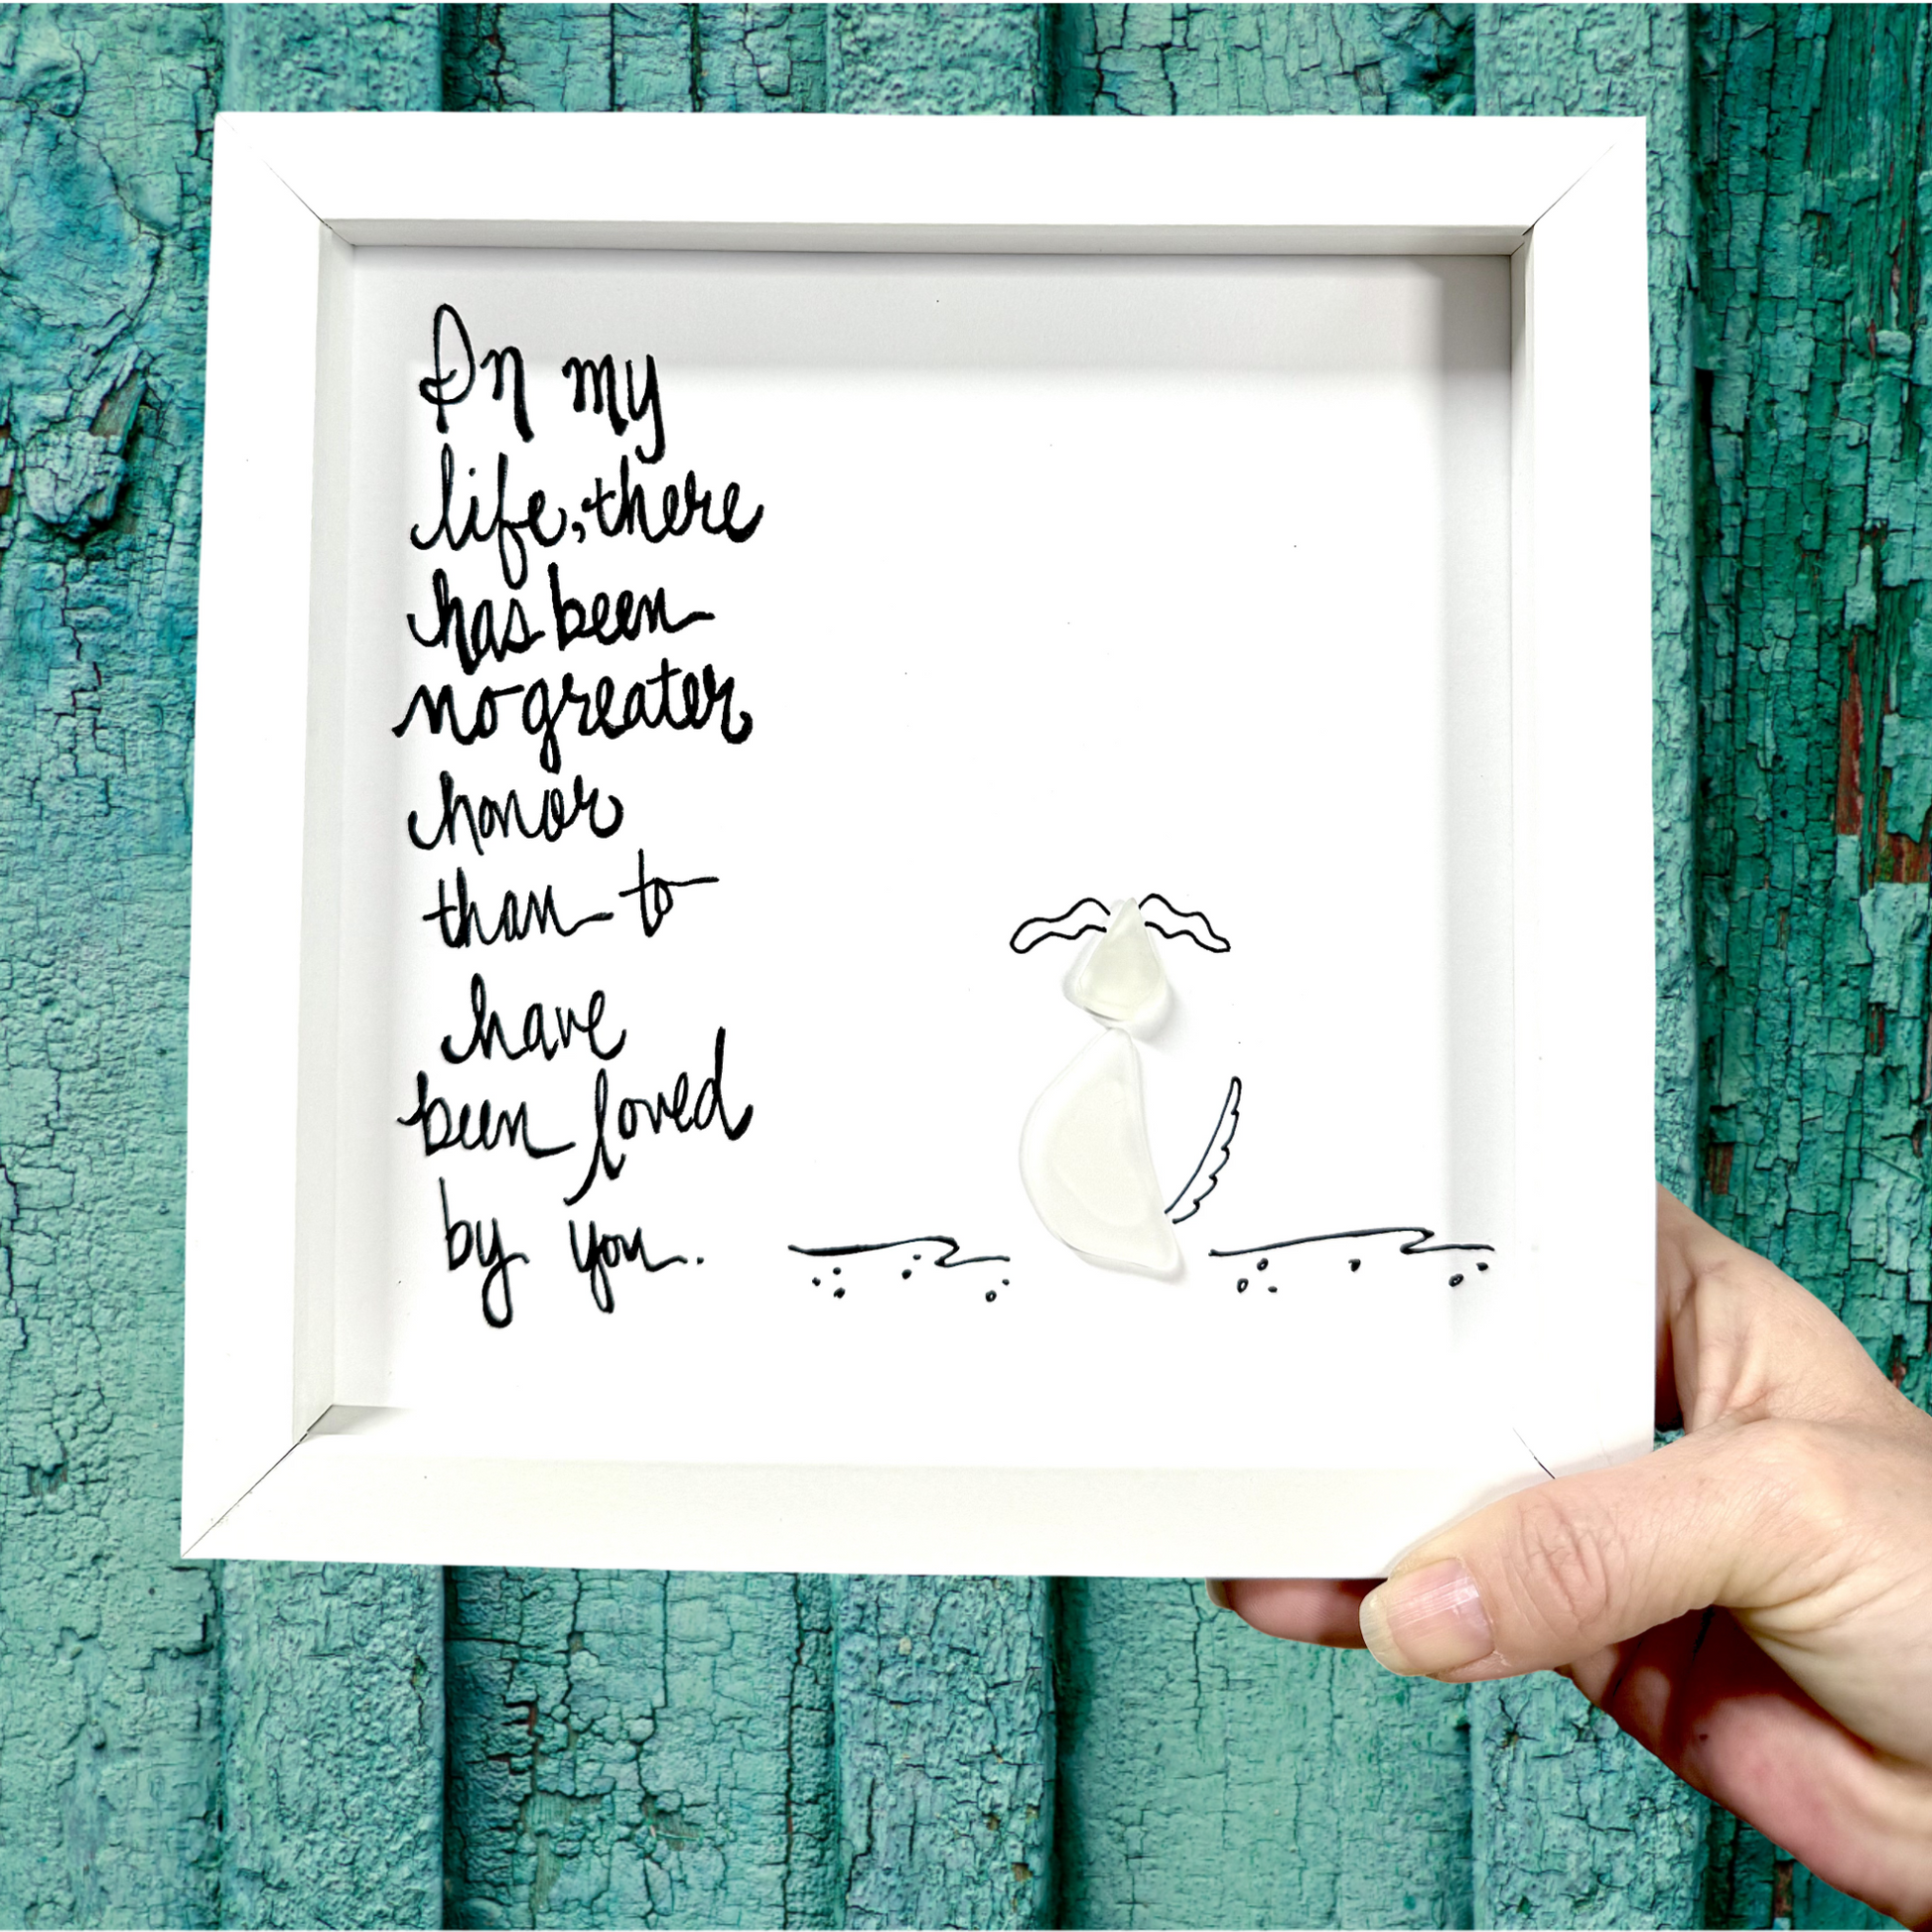 In my
life, there
has been
no greater
honor
than to
have
been loved
by you.